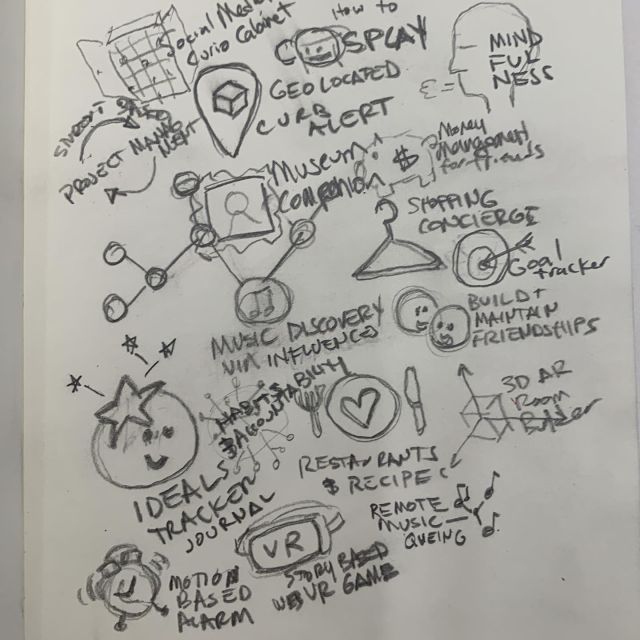 Social Media
Curio Cabinet
HOW TO
COSPLAY
MIND
FUL
NESS
GEOLOCATED
CURB
ALERT
PROJECT MANAGEMENT
Museum
Companion
$
Money
Management
for friends
SHOPPING
CONCIERGE
Goal
tracker
BUILD +
MAINTAIN
FRIENDSHIPS
MUSIC DISCOVERY
VIA INFLUENCE
HABITS
3D AR
Room
Builder
RESTAURANTS
& RECIPES
IDEALS
TRACKER
JOURNAL
REMOTE
MUSIC
QUEING
VR
STORY BASED
VR GAME
MOTION
BASED
ALARM